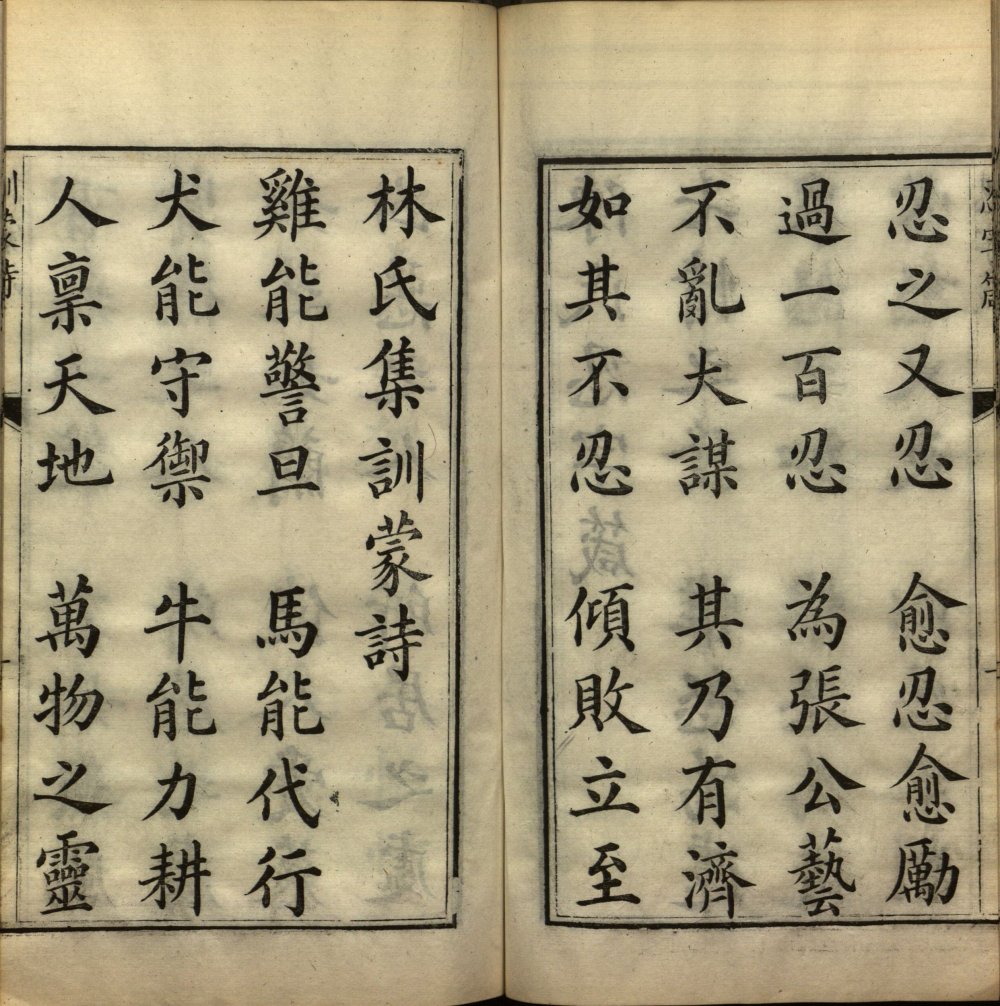 忍之又忍　愈忍愈勵
過一百忍　為張公藝
不亂大謀　其乃有濟
如其不忍　傾敗立至
林氏集訓蒙詩
雞能警旦　馬能代行
犬能守禦　牛能力耕
人稟天地　萬物之靈